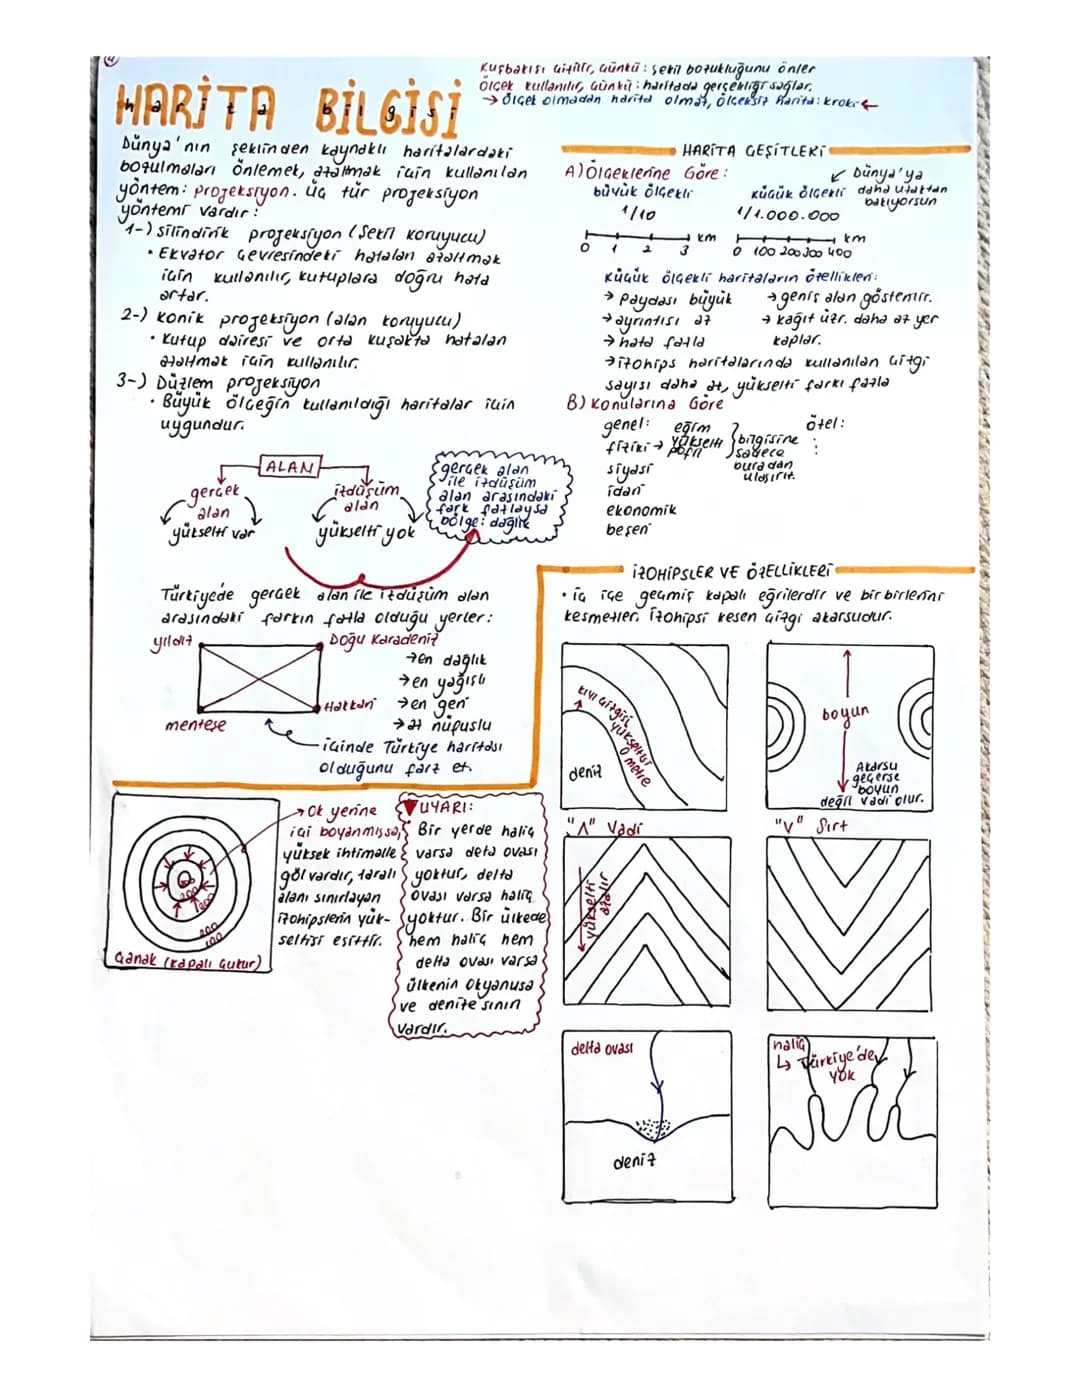 HARİTA BİLGİSİ
harita bilgisi
Kuşbakışı çizilir, Çünkü: şekil bozukluğunu önler
Ölçek kullanılır, çünkü: haritada gerçekliği sağlar.
→ ölçek olmadan harita olmaz, ölçeksiz harita: kroki ←
Dünya'nın şeklinden kaynaklı haritalardaki
bozulmaları önlemek, azaltmak için kullanılan
yöntem: projeksiyon. üç tür projeksiyon
yöntemi vardır:
1-) silindirik projeksiyon (Şekil koruyucu)
• Ekvator Çevresindeki hataları azaltmak
için kullanılır, kutuplara doğru hata
artar.
2-) konik projeksiyon (alan koruyucu)
• kutup dairesi ve orta kuşakta hataları
azaltmak için kullanılır.
3-) Düzlem projeksiyon
• Büyük ölçeğin kullanıldığı haritalar için
uygundur.
ALAN
gerçek
alan
yükselti var
izdüşüm
alan
yükselti yok
gerçek alan
ile izdüşüm
alan arasındaki
fark fazlaysa
bölge: dağlık
Türkiyede gerçek alan ile izdüşüm alan
arasındaki farkın fazla olduğu yerler:
yıldız
Doğu Karadeniz
→en dağlık
→en yağışlı
Hakkari →en geri
menteşe →az nüfuslu
içinde Türkiye haritası
olduğunu farz et.
HARİTA ÇEŞİTLERİ
A) Ölçeklerine Göre:
büyük ölçekli
1/10
0 1 2 3 km
küçük ölçekli
1/1.000.000
0 100 200 300 400 km
Dünya'ya
daha uzaktan
bakıyorsun
küçük ölçekli haritaların özellikleri:
→ paydası büyük → geniş alan gösterir.
→ ayrıntısı az → kağıt üzr. daha az yer
→ hata fazla kaplar.
→izohips haritalarında kullanılan çizgi
sayısı daha az, yükselti farkı fazla
B) Konularına Göre
genel: özel:
fiziki → eğim
yükselti
profil
bilgisine
sadece
buradan
ulaşırız.
siyasi
idari
ekonomik
beşeri
İZOHİPSLER VE ÖZELLİKLERİ
• iç içe geçmiş kapalı eğrilerdir ve bir birlerini
kesmezler. izohipsi kesen çizgi akarsudur.
kıyı çizgisi
yükseltisi
0 metre
deniz
boyun
Akarsu
geçerse
boyun
değil vadi olur.
"Λ" Vadi
yükselti
azalır
"V" Sırt
delta ovası
deniz
haliç
↳ Türkiye'de
yok
200
200
200
100
Çanak (kapalı çukur)
→ Ok yerine
içi boyanmışsa,
yüksek ihtimalle
göl vardır, taralı
alanı sınırlayan
izohipslerin yük-
seltisi eşittir.
UYARI:
Bir yerde haliç
varsa delta ovası
yoktur, delta
ovası varsa haliç
yoktur. Bir ülkede
hem haliç hem
delta ovası varsa
ülkenin Okyanusa
ve denize sınırı
vardır.